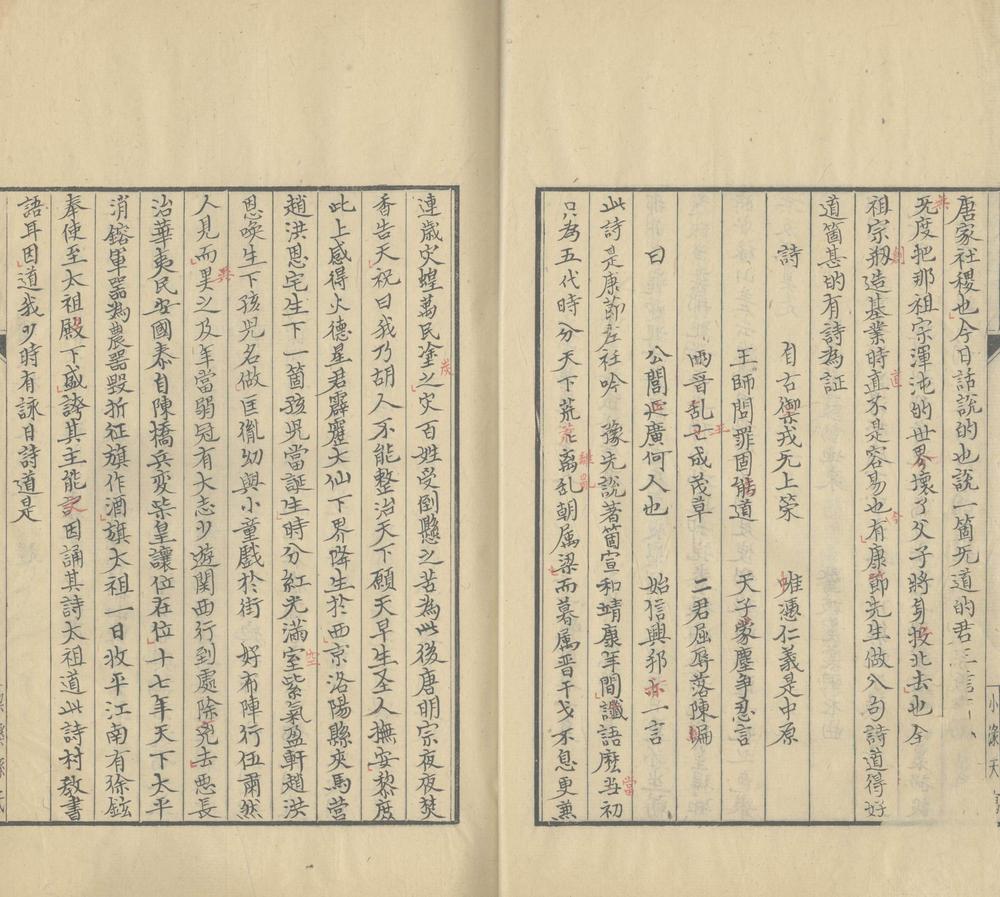 唐家社稷也今日話說的也說一箇无道的君王信
无度把那祖宗渾沌的世界壞了父子將身投北去也全
祖宗刱造基業時直不是容易也有康節先生做八句詩道得好
道箇甚的有詩為証
詩 自古禦戎无上策 惟憑仁義是中原
王師問罪固能道 天子蒙塵爭忍言
兩晉亂亡成茂草 二君屈辱落陳編
公閭延廣何人也 始信興邦亦一言
曰
此詩是康節左衽吟 豫先說著箇宣和靖康年間讖語麽當初
只為五代時分天下荒荒離亂朝属梁而暮属晋干戈不息更兼
連歳灾蝗萬民塗之灾百姓受倒懸之苦為此後唐明宗夜夜焚
香告天祝曰我乃胡人不能整治天下願天早生圣人撫安黎庶
此上感得火德星君霹靂大仙下界降生於西京洛陽縣夾馬营
趙洪恩宅生下一箇孩児當誕生時分紅光滿室紫氣盈軒趙洪
恩喚生下孩児名做匡胤幼與小童戲於街 好布陣行伍爾然
人見而果之及年當弱冠有大志少遊関西行到處除兇去恶長
治華夷民安國泰自陳橋兵变柴皇讓位在位十七年天下太平
消鎔軍器為農器毀折征旗作酒旗太祖一日收平江南有徐鉉
奉使至太祖殿下盛誇其主能詩因誦其詩太祖道此詩村教書
語耳因道我少時有詠日詩道是
小緑天